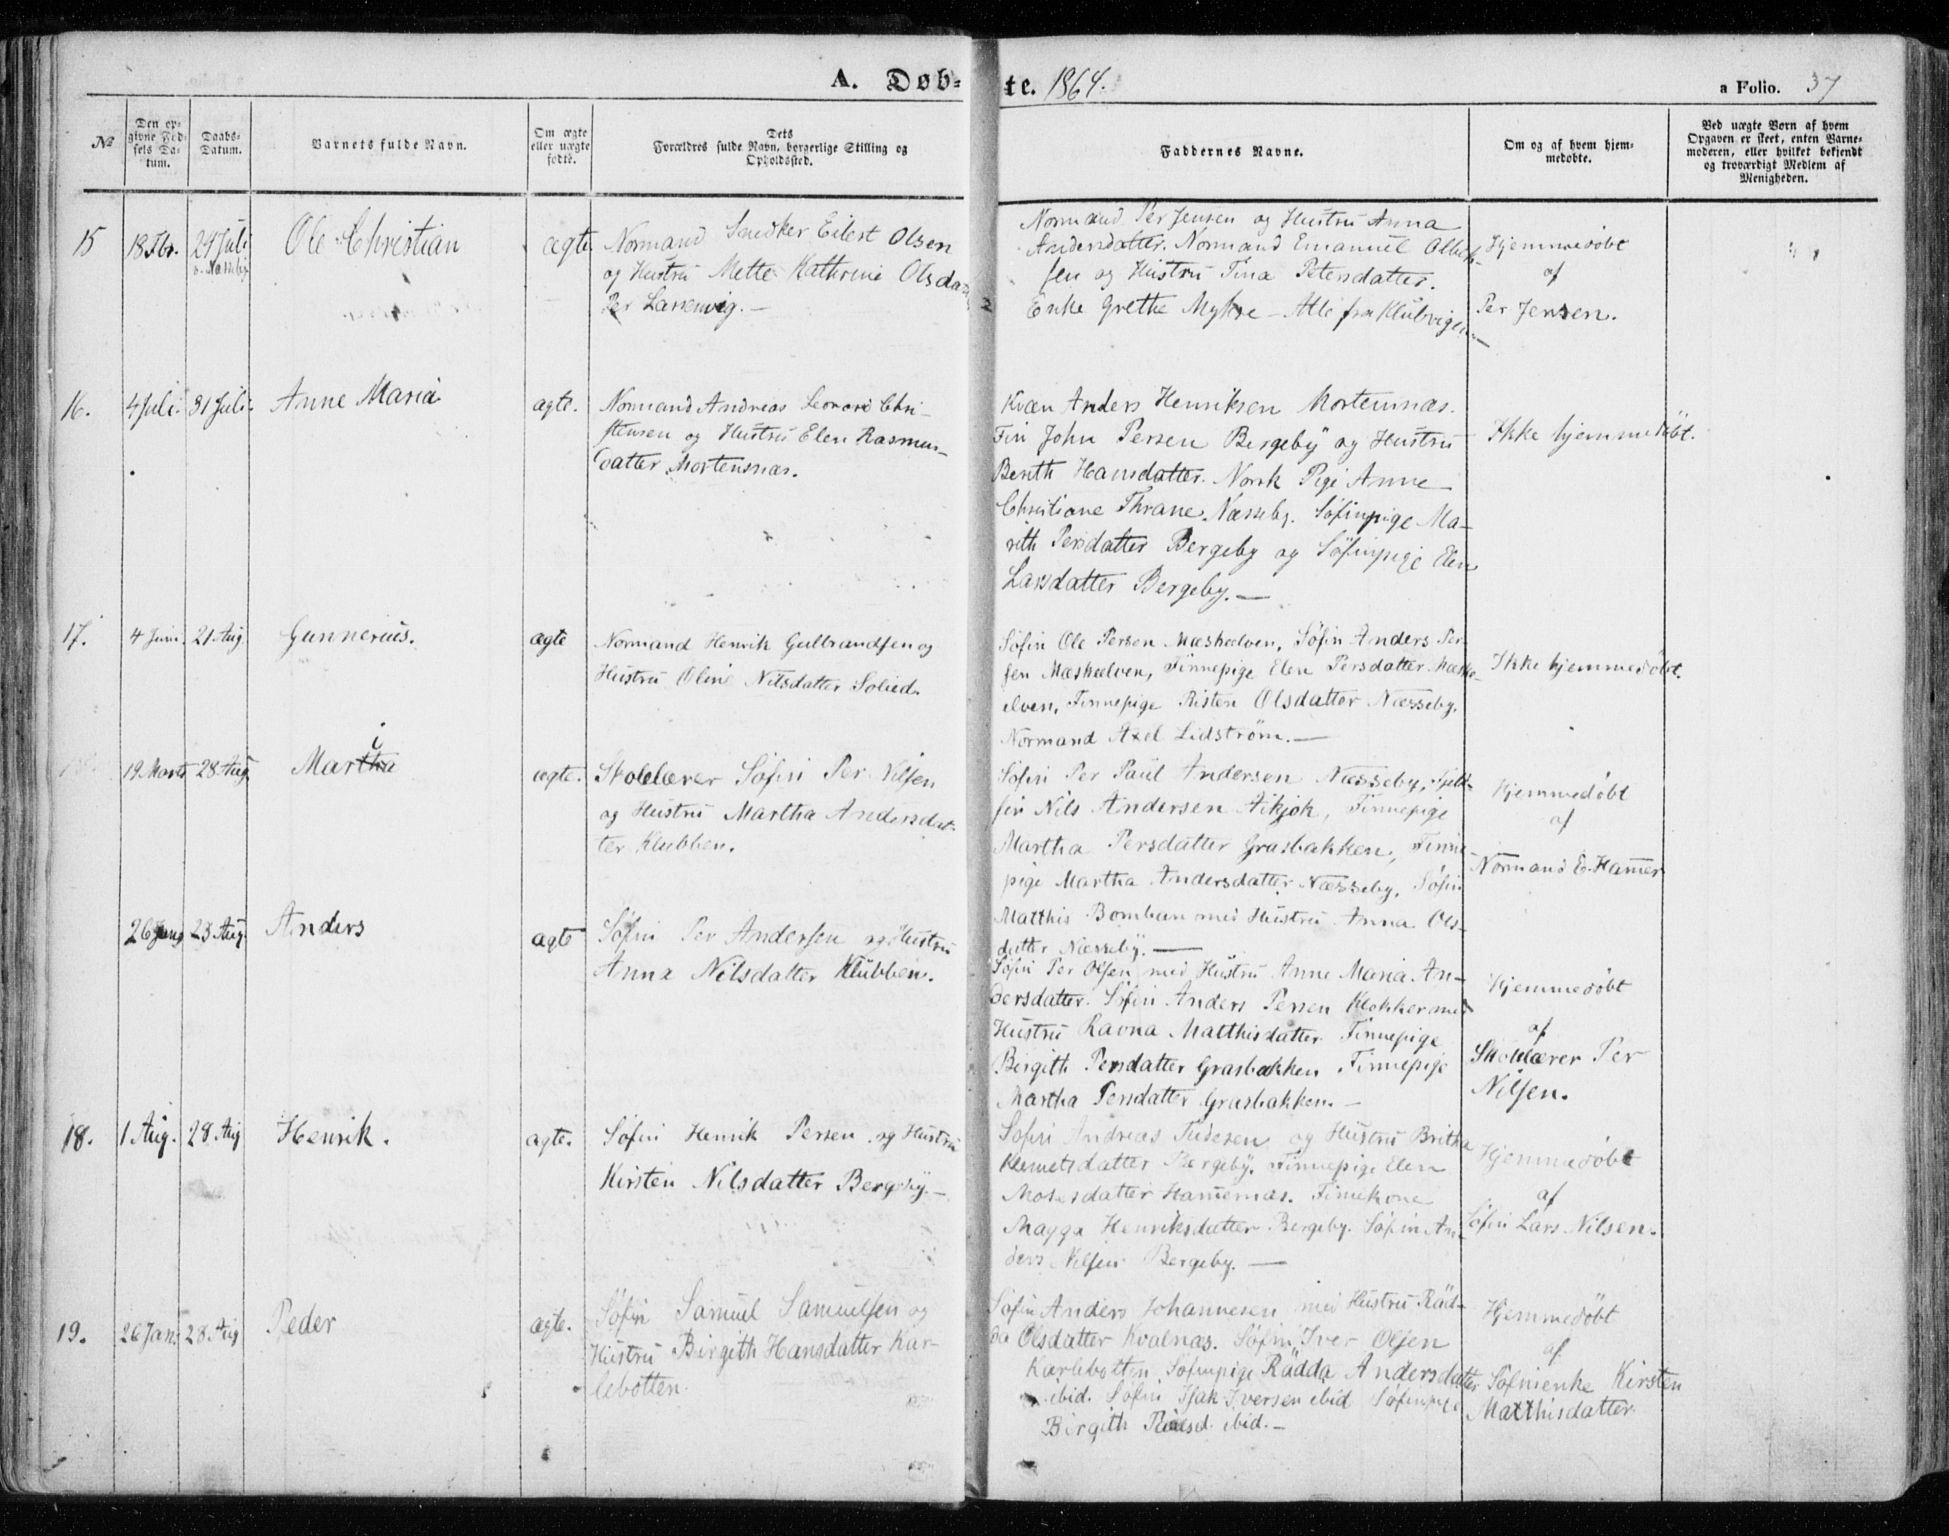 A. Døb-
te. 1864.
a Folio. 37
No
Den op-
givne Fød-
sels Da-
tum.
Daabs-
Datum.
Barnets fulde Navn.
Om ægte
eller uægte
fødte.
Dets
Forældres fulde Navn, borgerlige Stilling og
Opholdssted.
Faddernes Navne.
Om og af hvem hjem-
medøbte.
Ved uægte Børn af hvem
Opgaven er skeet, enten Barne-
moderen, eller hvilket bekjendt
og troværdigt Medlem af
Menigheden.
15
18 Fbr.
24 Juli
Ole Christian
ægte
Normand Snedker Eilert Olsen
og Hustru Mette Kathrine Olsda
Per Larsenvig. —
Normand Per Jensen og Hustru Anna
Normand Emanuel
sen og Hustru Tina Petersdatter.
Enke Grethe Mykse — Alle fra Klubvigen
Hjemmedøbt
af
Per Jensen.
16.
4 Juli.
31 Juli.
Anne Maria
ægte.
Normand Andreas Leonard Chri-
stensen og Hustru Elen Rasmus-
datter Mortensnæs.
Kvæn Anders Henriksen Mortensnæs.
Fin John Persen Bergeby og Hustru
Berith Hansdatter. Norsk Pige Anne
Christiane Thrane Næsseby. Søfinpige Ma-
rith Persdatter Bergeby og Søfinpige Elen
Larsdatter Bergeby. —
Ikke hjemmedöbt.
17.
4 Juni.
21 Aug.
Gunnerius.
ægte
Normand Henrik Gulbrandsen og
Hustru Oline Nilsdatter Solied.
Søfin Ole Persen Mæskeelven, Søfin Anders Per-
sen Mæskeelven, Finnepige Elen Persdatter Mæske-
elven, Finnepige Risten Olsdatter Næsseby.
Normand Axel Lidstrøm. —
Ikke hjemmedöbt.
19 Marts
28 Aug
i
Martha
ægte.
Skolelærer Søfin Per Nilsen
og Hustru Martha Andersdat-
ter Klubben.
Søfin Per Paul Andersen Næsseby, Fjeld-
fin Nils Andersen Aikjok, Finnepige
Martha Persdatter Grasbakken, Finne-
pige Martha Andersdatter Næsseby, Søfin
Matthis Bomban med Hustru Anna Ols-
datter Næsseby. —
Hjemmedøbt
af
Normand E. Hamer
23 Aug.
Anders
ægte
Søfin Per Andersen og Hustru
Anna Nilsdatter Klubben.
Søfin Per Olsen med Hustru Anne Maria An-
dersdatter. Søfin Anders Persen Klokker med
Hustru Ravna Matthisdatter Finnepige
Birgith Persdatter Grasbakken Finnepige
Martha Persdatter Grasbakken. —
Hjemmedøbt
af
Skolelærer Per
Nilsen.
18.
1 Aug.
28 Aug
Henrik.
ægte.
Søfin Henrik Persen og Hustru
Kirsten Nilsdatter Bergeby. —
Søfin Andreas Tudesen og Hustru Britha
Klemetsdatter Bergeby. Finnepige Elen
Mosesdatter Hamernæs. Finnekone
Magga Henriksdatter Bergeby. Søfin An-
ders Nilsen Bergeby. —
Hjemmedøbt
af
Søfin Lars Nilsen.
19.
26 Jan.
28 Aug
Peder
ægte.
Søfin Samuel Samuelsen og
Hustru Birgith Hansdatter Kar-
lebotten.
Søfin Anders Johannesen med Hustru Räd-
da Olsdatter Kvalnæs. Søfin Iver Olsen
Karlebotten. Søfinpige Rädda Andersdatter
ibid. Søfin Isak Iversen ibid Søfinpige
Birgith ibid. —
Hjemmedøbt
af
Søfinenke Kirsten
Matthisdatter